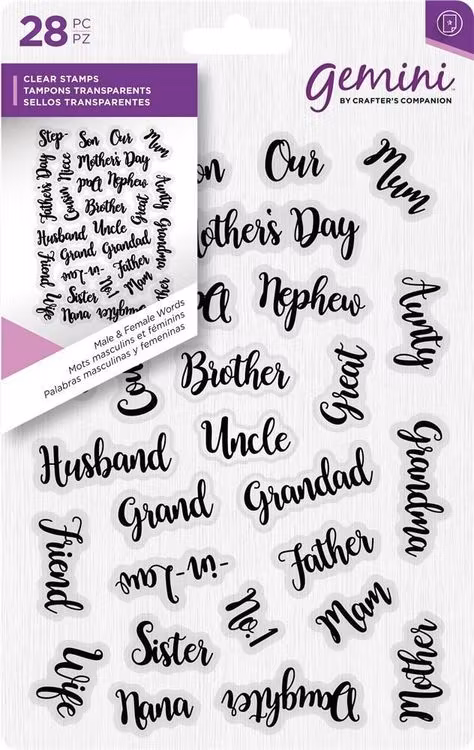 28 PC
PZ
CLEAR STAMPS
TAMPONS TRANSPARENTS
SELLOS TRANSPARENTES
gemini
BY CRAFTER'S COMPANION
Step- Son Our Mum
Father's Day Cousin Niece Mother's Day
Dad Nephew Aunty
Brother Great
Husband Uncle Grandma
Grand Grandad
Friend -in-Law Father
No.1 Mam
Sister
Wife Nana Daughter
Male & Female Words
Mots masculins et féminins
Palabras masculinas y femeninas
on Our Mum
other's Day
Nephew Aunty
Brother Great
Cou
Husband Uncle Grandma
Grand Grandad
Friend -in-Law Father
No.1 Mam
Sister Mother
Wife Nana Daughter